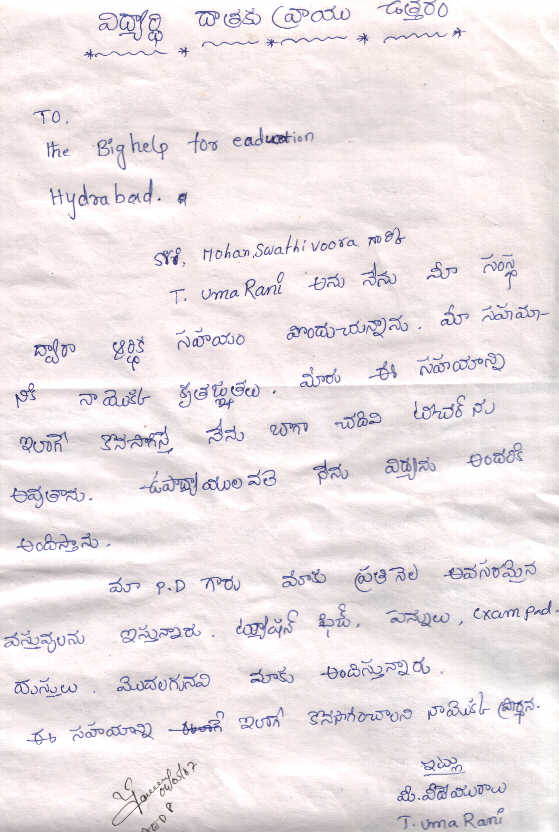 విద్యార్థి దాతకు వ్రాయు ఉత్తరం
TO,
the Big help for eaducation
Hydrabad.
Mohan, Swathi voora గారికి
T. Uma Rani అను నేను మీ సంస్థ
ద్వారా ఆర్థిక సహాయం పొందుచున్నాను. మీ సహయా-
నికి నా యొక్క కృతజ్ఞతలు. మీరు ఈ సహాయాన్ని
ఇలాగే కొనసాగిస్తే నేను బాగా చదివి టీచర్ ను
అవుతాను. ఉపాధ్యాయుల వలె నేను విద్యను అందరికి
అందిస్తాను.
మా P.D గారు మాకు ప్రతి నెల అవసరమైన
వస్తువులను ఇస్తున్నారు. ట్యూషన్ ఫీజ్, పెన్నులు, exam pad.
దుస్తులు. మొదలగునవి మాకు అందిస్తున్నారు.
ఈ సహాయాన్ని ఇలాగే కొనసాగించాలని నా యొక్క ప్రార్థన.
ఇట్లు
T. Uma Rani